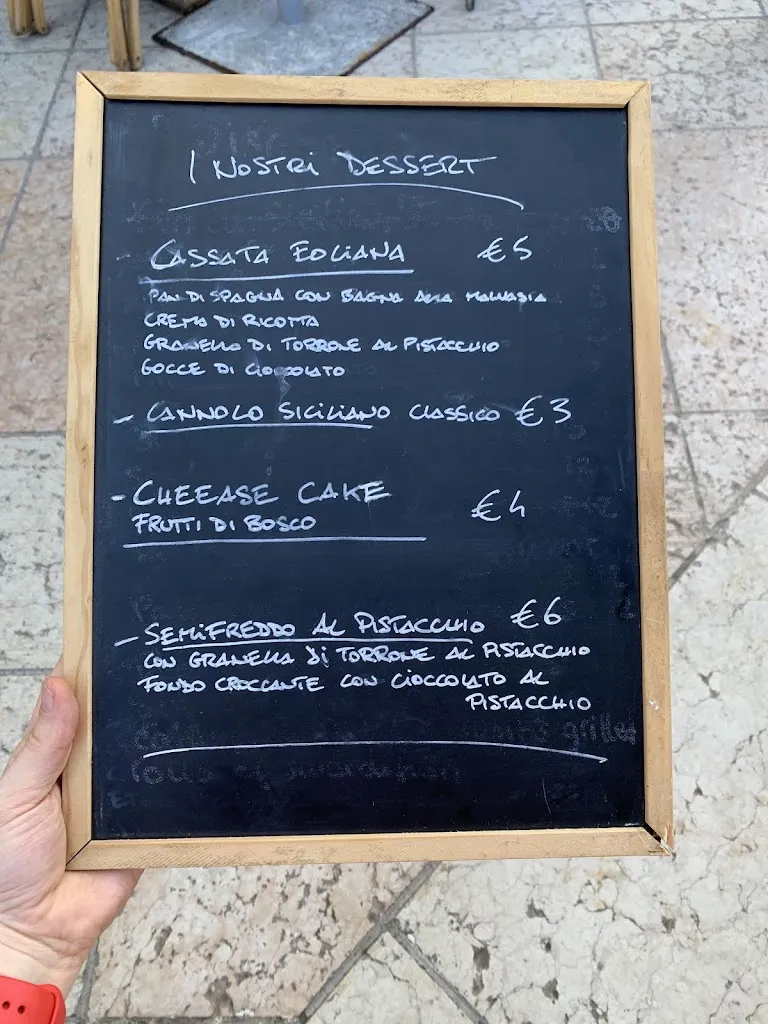 I NOSTRI DESSERT
CASSATA EOLIANA €5
PAN DI SPAGNA CON BAGNA ALLA MALVASIA
CREMA DI RICOTTA
GRANELLA DI TORRONE AL PISTACCHIO
GOCCE DI CIOCCOLATO
- CANNOLO SICILIANO CLASSICO €3
- CHEEASE CAKE
FRUTTI DI BOSCO €4
- SEMIFREDDO AL PISTACCHIO €6
CON GRANELLA di TORRONE AL PISTACCHIO
FONDO CROCCANTE CON CIOCCOLATO AL
PISTACCHIO